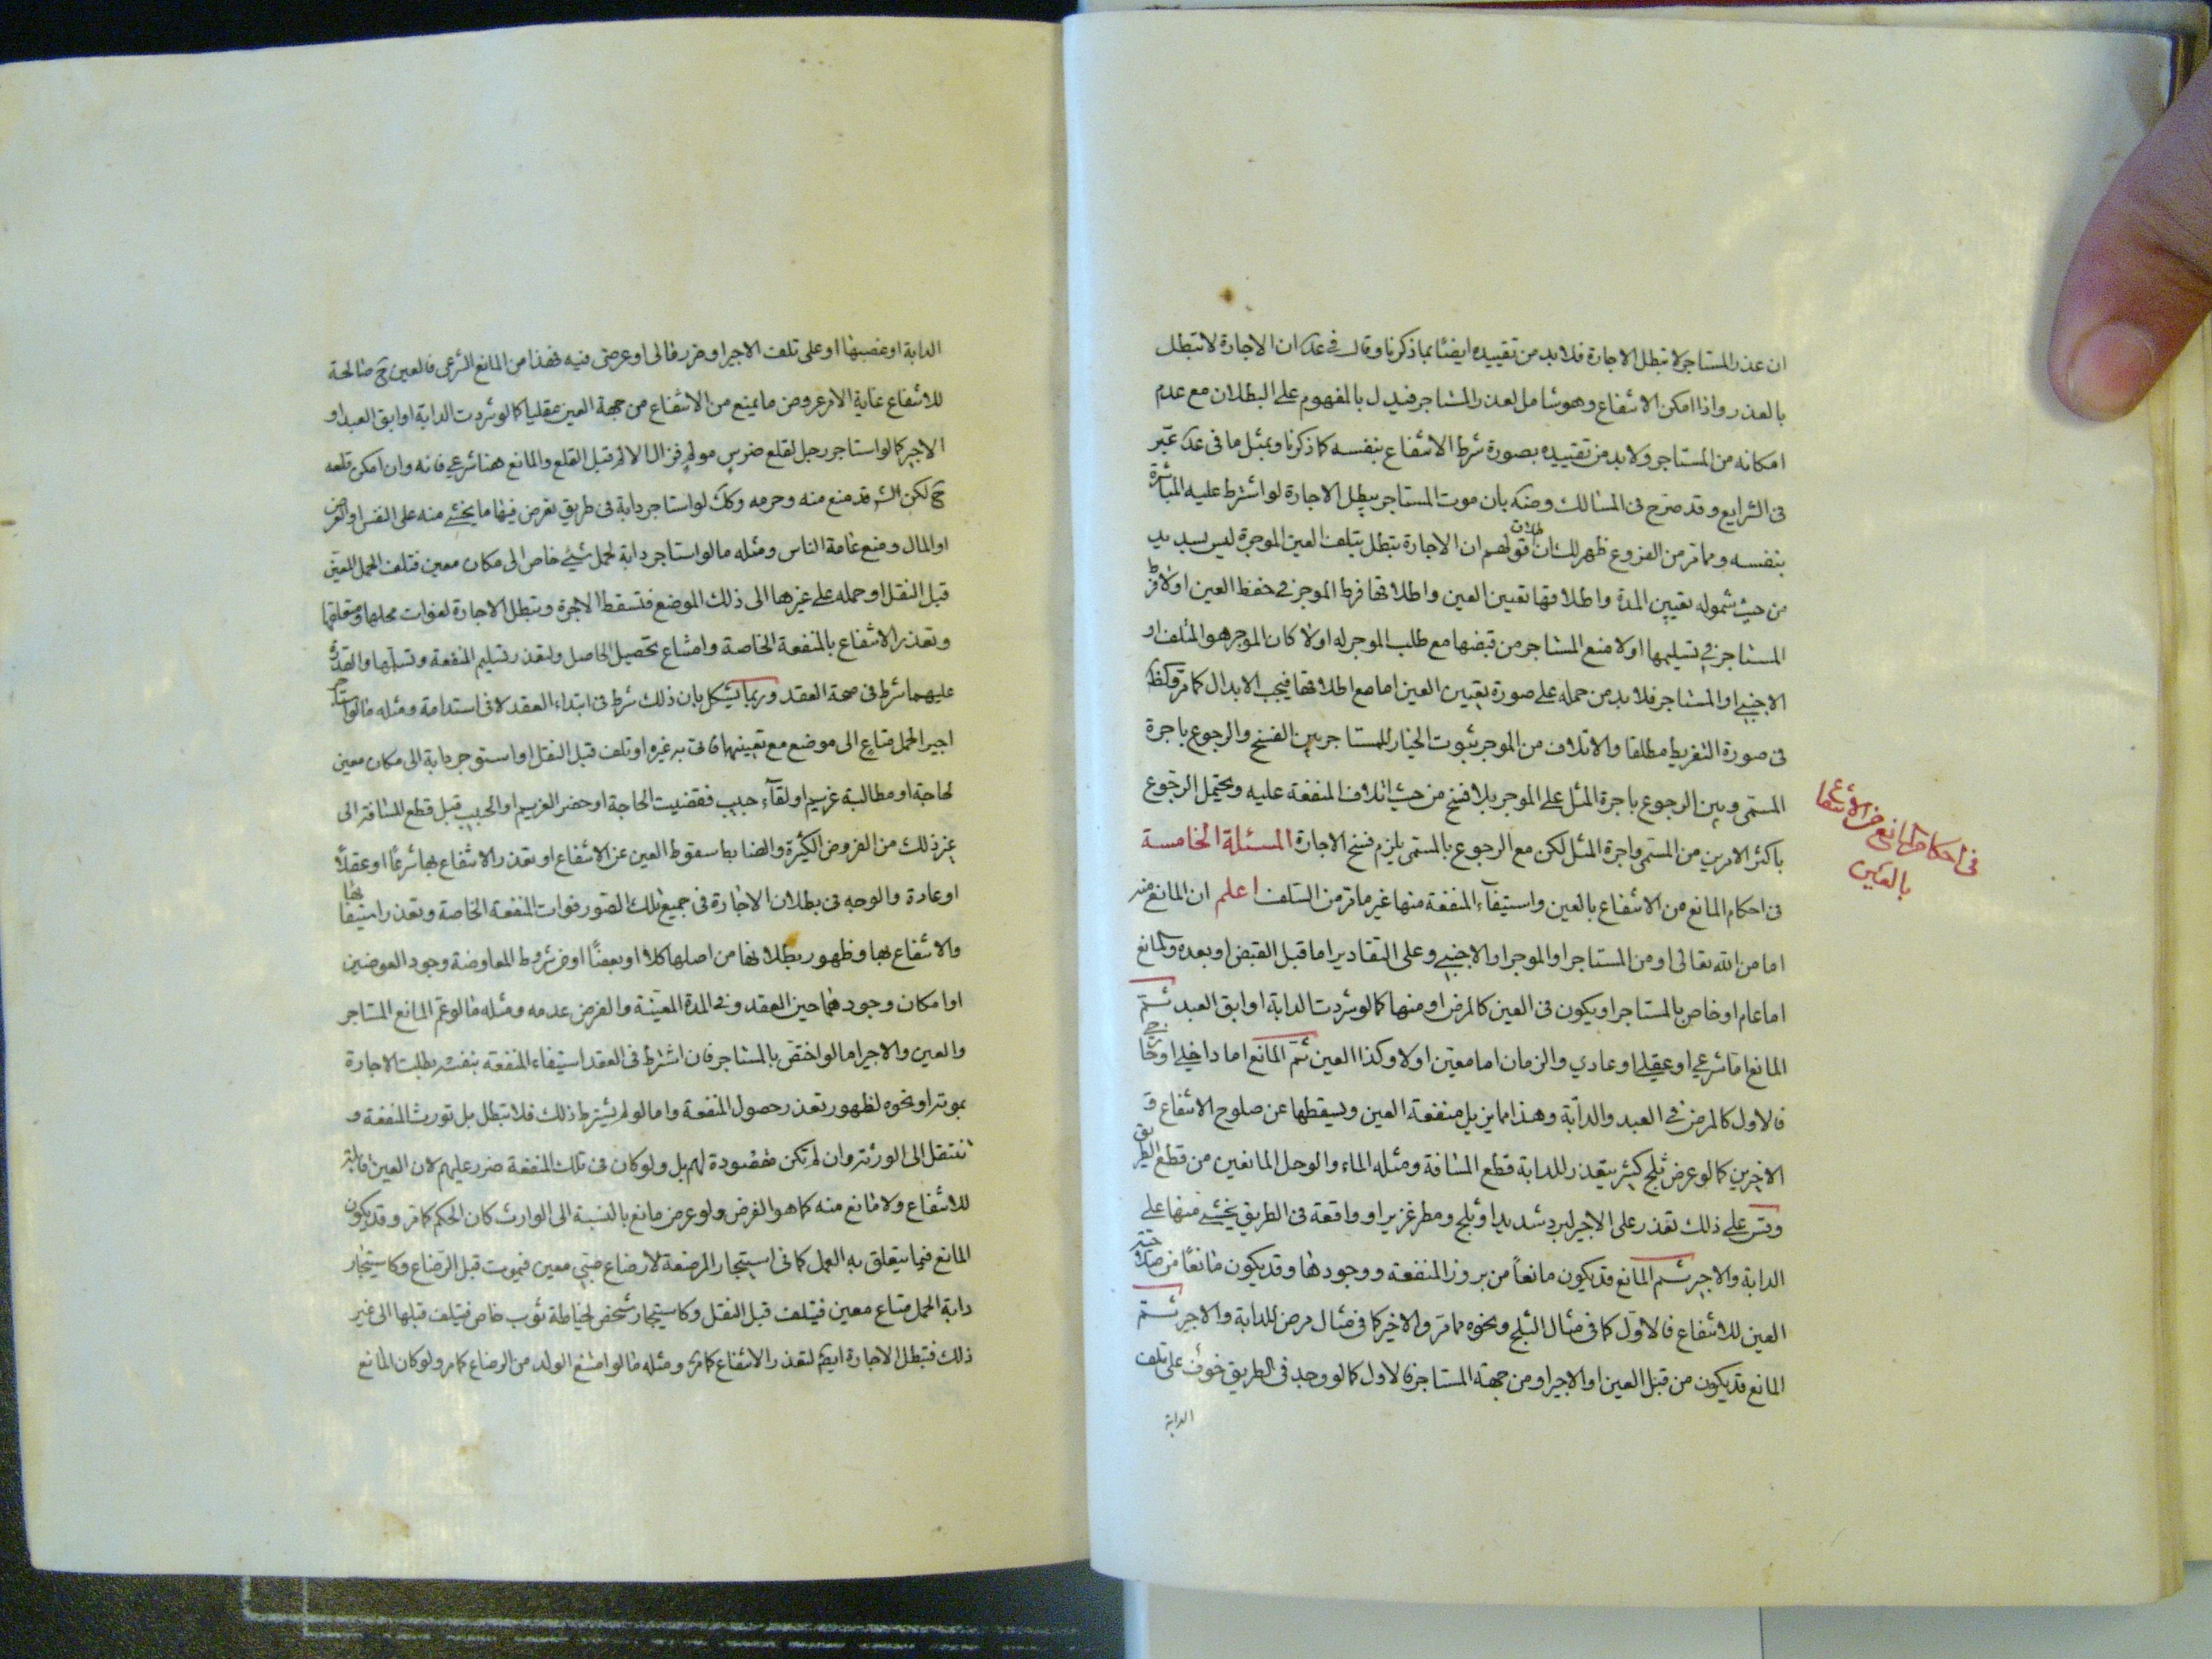 ان عذر المستاجر لا تبطل الاجارة فلا بد من تقييده ايضا بما ذكرنا وقال في عد ان الاجارة لا تبطل
بالعذر واذا امكن الانتفاع وهو شامل لعذر المستاجر فيدل بالمفهوم على البطلان مع عدم
امكانه من المستاجر ولا بد من تقييده بصورة شرط الانتفاع بنفسه كما ذكرنا وبمثل ما في عد عبر
في الشرايع وقد صرح في المسالك وضه بان موت المستاجر يبطل الاجارة لو اشترط عليه المباشرة
بنفسه ومما مر من الفروع ظهر لك ان اطلاق قولهم ان الاجارة تبطل بتلف العين الموجرة ليس بسديد
من حيث شموله تعيين المدة واطلاقها تعيين العين واطلاقها فرط الموجر في حفظ العين اولا فرط
المستاجر في تسليمها اولا منع المستاجر من قبضها مع طلب الموجر له اولا كان الموجر هو المتلف او
الاجنبي او المستاجر فلا بد من حمله على صورة تعيين العين اما مع اطلاقها فيجب الابدال كما مر وكلظهر
في صورة التفريط مطلقا والاتلاف من الموجر بثبوت الخيار للمستاجر بين الفسخ والرجوع باجرة
المسمى وبين الرجوع باجرة المثل على الموجر بلا فسخ من حيث اتلاف المنفعة عليه ويحتمل الرجوع
باكثر الامرين من المسمى واجرة المثل لكن مع الرجوع بالمسمى يلزم فسخ الاجارة المسئلة الخامسة
في احكام المانع من الانتفاع بالعين واستيفاء المنفعة منها غير ما مر من التلف اعلم ان المانع منه
اما من الله تعالى او من المستاجر او الموجر او الاجنبي وعلى التقادير اما قبل القبض او بعده والمانع
اما عام او خاص بالمستاجر او يكون في العين كالمرض او منها كما لو شردت الدابة او ابق العبد ثم
المانع اما شرعي او عقلي او عادي والزمان اما معين اولا وكذا العين ثم المانع اما داخلي او خارجي
فالاول كالمرض في العبد والدابة وهذا مما يزيل منفعة العين ويسقطها عن صلوح الانتفاع و
الاخرين كما لو عرض ثلج كثير يتعذر للدابة قطع المسافة ومثله الماء والوحل المانعين من قطع الطريق
وقس على ذلك تعذر على الاجير لبرد شديد او ثلج ومطر غزير او واقعة في الطريق يخشى منها على
الدابة والاجير ثم المانع قد يكون مانعا من بروز المنفعة ووجودها وقد يكون مانعا من صلاحية
العين للانتفاع فالاول كما في مثال الثلج ونحوه مما مر والاخير كما في مثال مرض الدابة والاجير ثم
المانع قد يكون من قبل العين او الاجير او من جهة المستاجر فالاول كما لو وجد في الطريق خوف على تلف
الدابة
في احكام المانع من الانتفاع
بالعين
الدابة او غصبها او على تلف الاجير او ضرر مالي او عرضي فيه فهذا من المانع الشرعي فالعين ح صالحة
للانتفاع غاية الامر عروض ما يمنع من الانتفاع من جهة العين عقليا كما لو شردت الدابة او ابق العبد او
الاجير كما لو استاجر رجل لقلع ضرس مولم فزال الالم قبل القلع والمانع هنا شرعي فانه وان امكن قلعه
ح لكن الش قد منع منه وحرمه وكك لو استاجر دابة في طريق تعرض فيها ما يخشى منه على النفس او العرض
او المال ومنع عامة الناس ومثله ما لو استاجر دابة لحمل شيء خاص الى مكان معين فتلف الحمل المعين
قبل النقل او حمله على غيرها الى ذلك الموضع فتسقط الاجرة وتبطل الاجارة لفوات محلها ومتعلقها
وتعذر الانتفاع بالمنفعة الخاصة وامتناع تحصيل الحاصل ولتعذر تسليم المنفعة وتسلمها والقدرة
عليهما شرط في صحة العقد وربما يشكل بان ذلك شرط في ابتداء العقد لا في استدامة ومثله ما لو استاجر
اجيرا لحمل متاع الى موضع مع تعيينهما فاتى به غيره او تلف قبل النقل او استوجر دابة الى مكان معين
لحاجة او مطالبة غريم او لقاء حبيب فقضيت الحاجة او حضر الغريم او الحبيب قبل قطع المسافة الى
غير ذلك من الفروض الكثيرة والضابط سقوط العين عن الانتفاع او تعذر الانتفاع بها شرعا او عقلا
او عادة والوجه في بطلان الاجارة في جميع تلك الصور فوات المنفعة الخاصة وتعذر استيفائها
والانتفاع بها وظهور بطلانها من اصلها كلا او بعضا او من شروط المعاوضة وجود العوضين
او امكان وجودهما حين العقد وفي المدة المعينة والفرض عدمه ومثله ما لو عم المانع المستاجر
والعين والاجير اما لو اختص بالمستاجر فان اشترط في العقد استيفاء المنفعة بنفسه بطلت الاجارة
بموته او نحوه لظهور تعذر حصول المنفعة واما لو لم يشترط ذلك فلا تبطل بل تورث المنفعة و
تنتقل الى الورثة وان لم تكن مقصودة لهم بل ولو كان في تلك المنفعة ضرر عليهم لان العين قابلة
للانتفاع ولا مانع منه كما هو الفرض ولو عرض مانع بالنسبة الى الوارث كان الحكم كما مر وقد يكون
المانع فيما يتعلق به العمل كما في استيجار المرضعة لارضاع صبي معين فيموت قبل الرضاع وكاستيجار
دابة لحمل متاع معين فيتلف قبل النقل وكاستيجار شخص لخياطة ثوب خاص فيتلف قبلها الى غير
ذلك فتبطل الاجارة ايضا لتعذر الانتفاع كما مر ومثله ما لو امتنع الولد من الرضاع كما مر ولو كان المانع